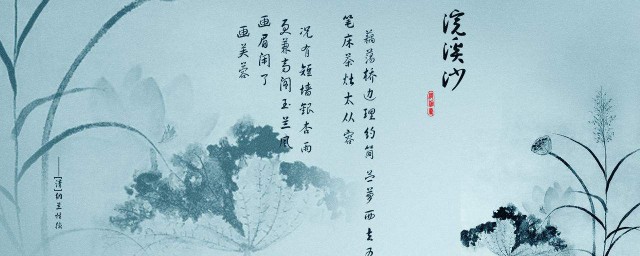 浣溪沙
藕荡桥边理钓筒 苎萝西去五
笔床茶灶太从容
况有短墙银杏雨
更兼高阁玉兰风
画眉闲了
画芙蓉
——[清]纳兰性德